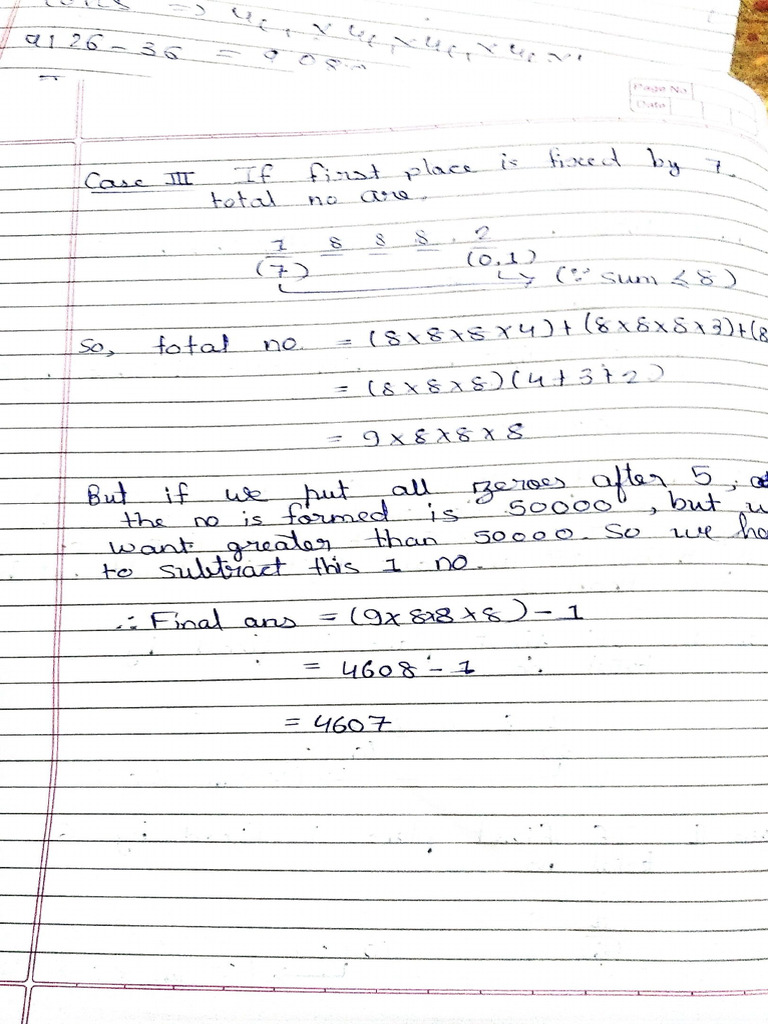 9126 - 36 =
Page No
Date
Case III If first place is fixed by 7.
total no are.
1 8 8 8 2
(7) (0,1)
(∵ sum ≤ 8)
So, total no = (8×8×8×4)+(8×8×8×3)+(8
= (8×8×8)(4+3+2)
= 9×8×8×8
But if we put all zeroes after 5,
the no is formed is 50000, but
want greater than 50000. So we ha
to subtract this 1 no.
∴ Final ans = (9×8×8×8) - 1
= 4608 - 1
= 4607